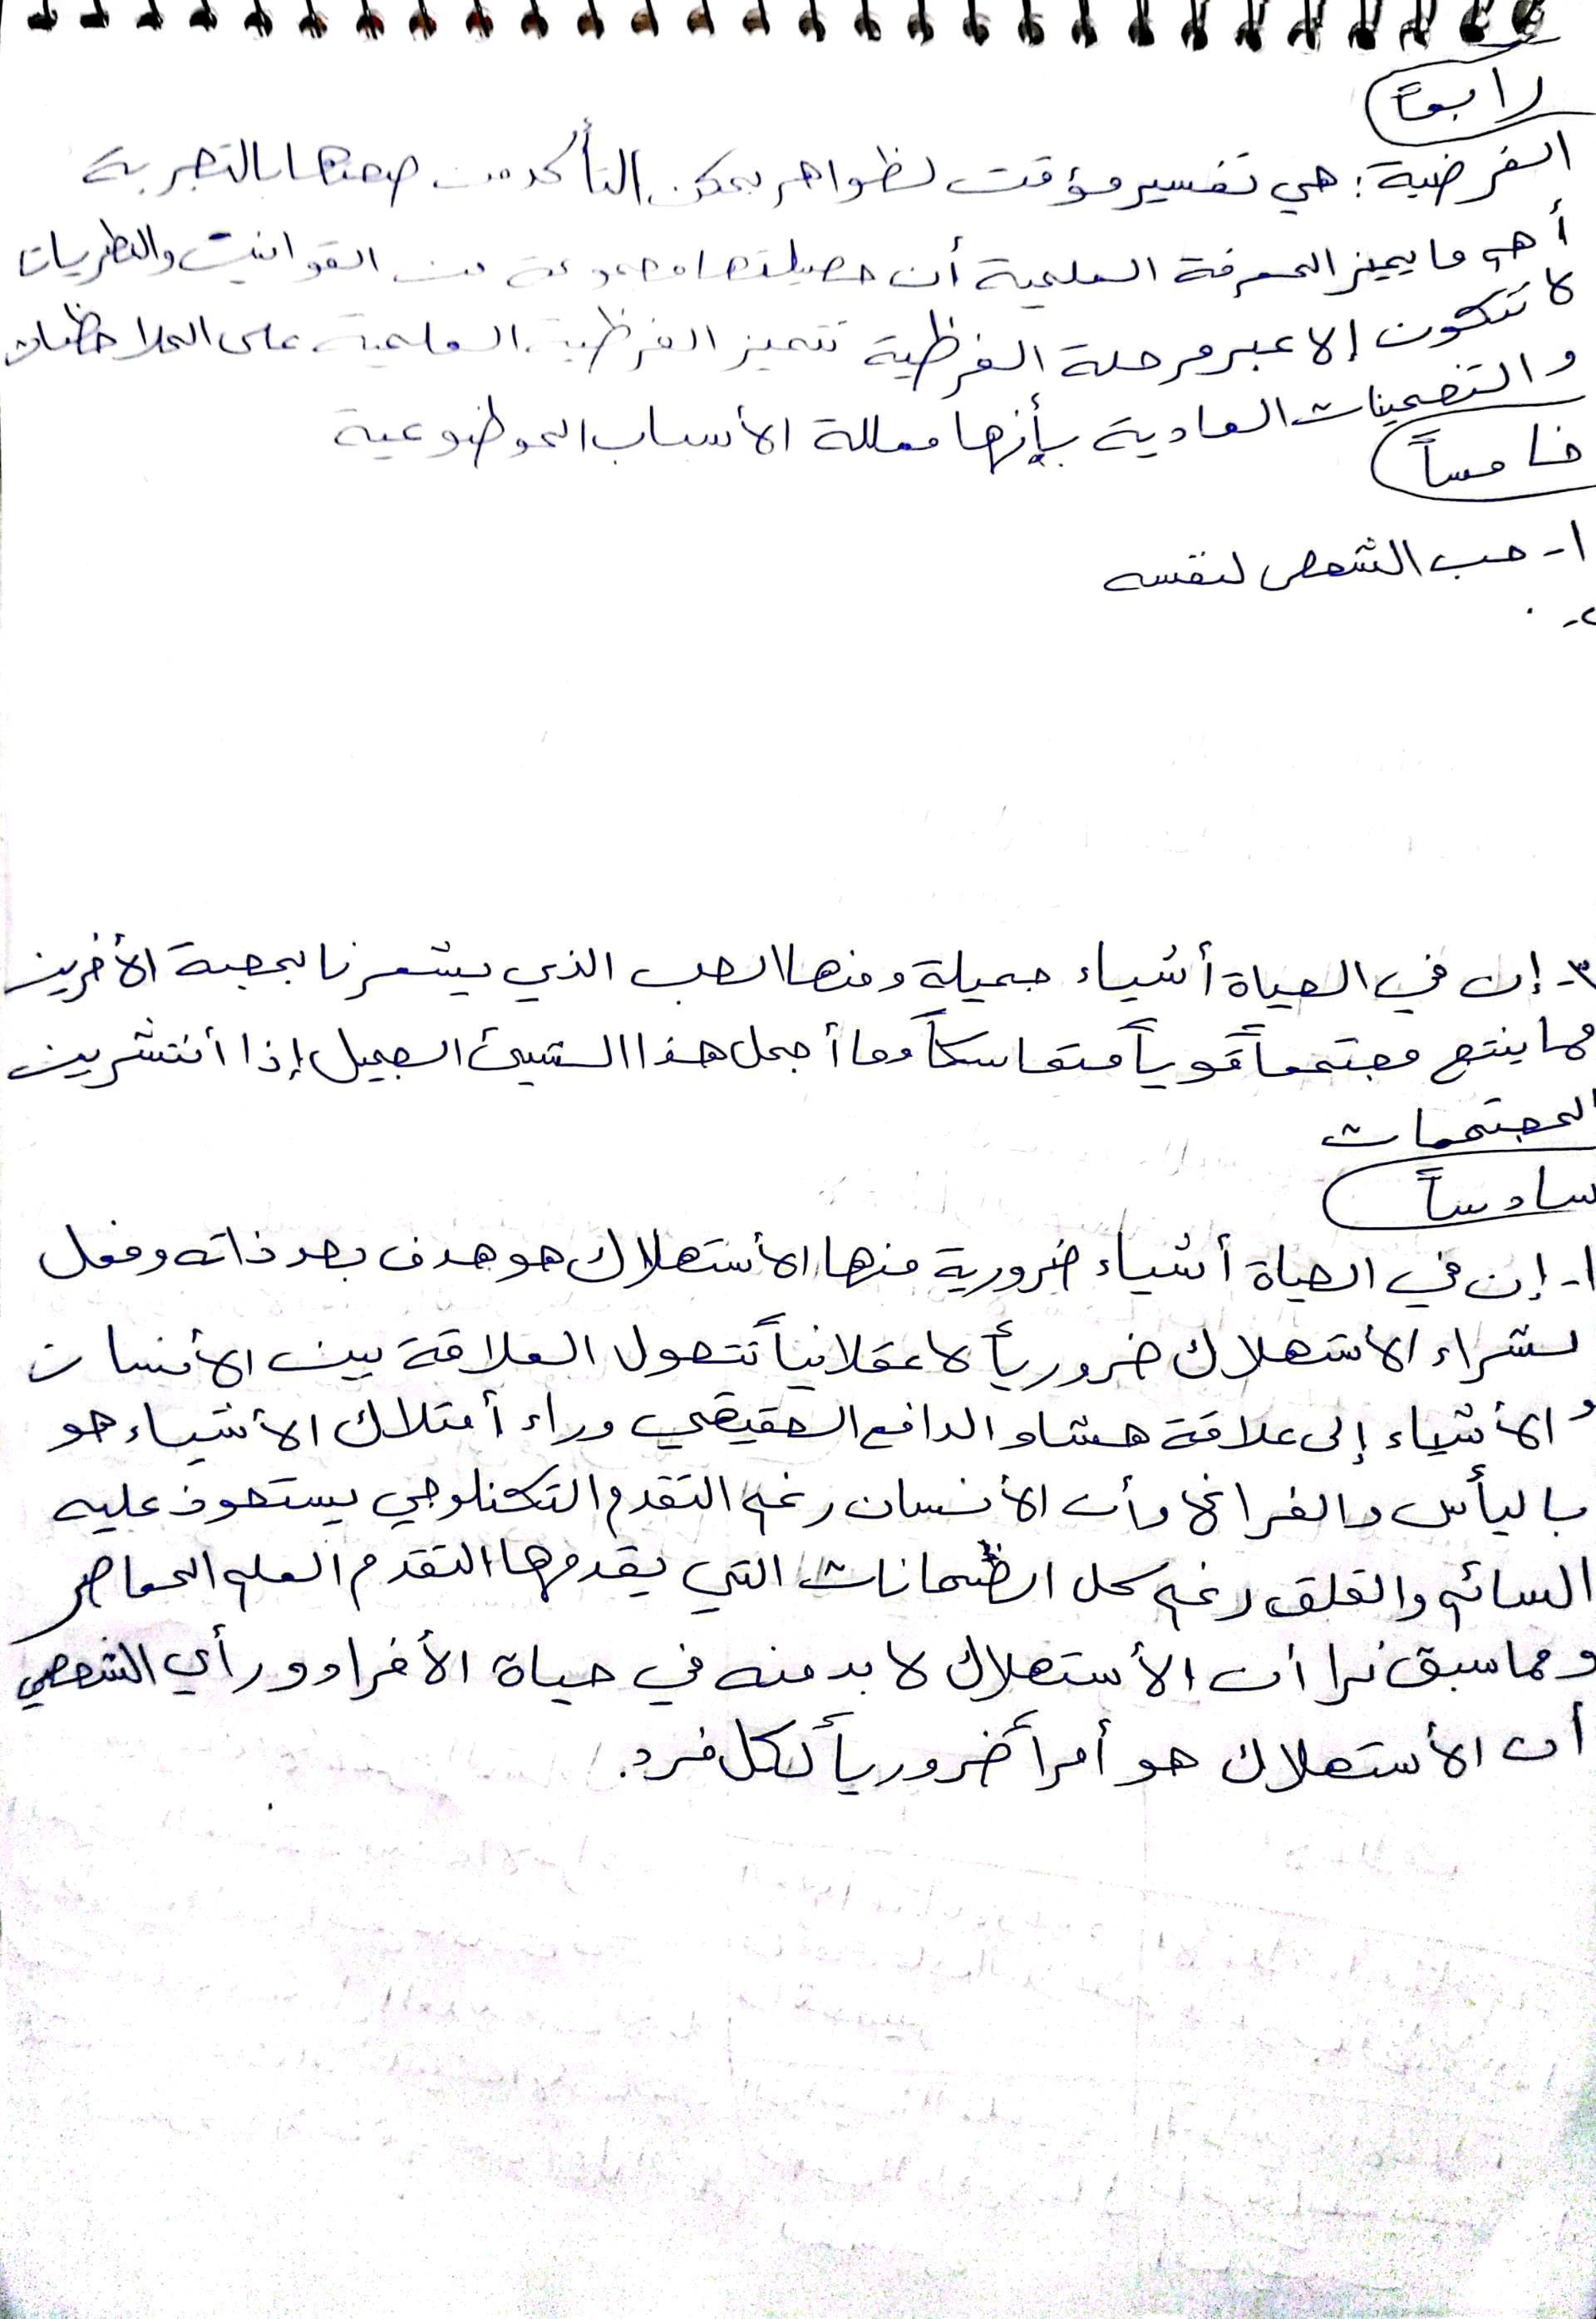 رابعاً
الفرضية: هي تفسير مؤقت لظواهر يمكن التأكد من صحتها بالتجربة
أهم ما يميز المعرفة العلمية أن حصيلتها مجموعة من القوانين والنظريات
لا تتكون إلا عبر مرحلة الفرظية تتميز الفرظية العلمية على الملاحظات
والتضمينات العادية بأنها معللة الأسباب الموظوعية
خامساً
١- حب الشخص لنفسه
٢- .
٣- إن في الحياة أشياء جميلة ومنها الحب الذي يشعرنا بمحبة الأخرين
مما ينتج مجتمعاً قوياً متماسكاً وما أجمل هذا الشيئ الجميل إذا أنتشر بين
المجتمعات
سادساً
١- إن في الحياة أشياء ضرورية منها الأستهلاك هو هدف بحد ذاته وفعل
لشراء الأستهلاك ضرورياً لا عقلانياً تتحول العلاقة بين الأنسان
و الأشياء إلى علاقة هشاو الدافع الحقيقي وراء أمتلاك الأشياء هو
باليأس والفراغ وأن الأنسان رغم التقدم التكنلوجي يستحوذ عليه
السائم والقلق رغم كل الظمانات التي يقدمها التقدم العلم المعاصر
ومما سبق نرا أن الأستهلاك لا بد منه في حياة الأفراد و رأي الشخصي
أن الأستهلاك هو أمراً ضرورياً لكل فرد.